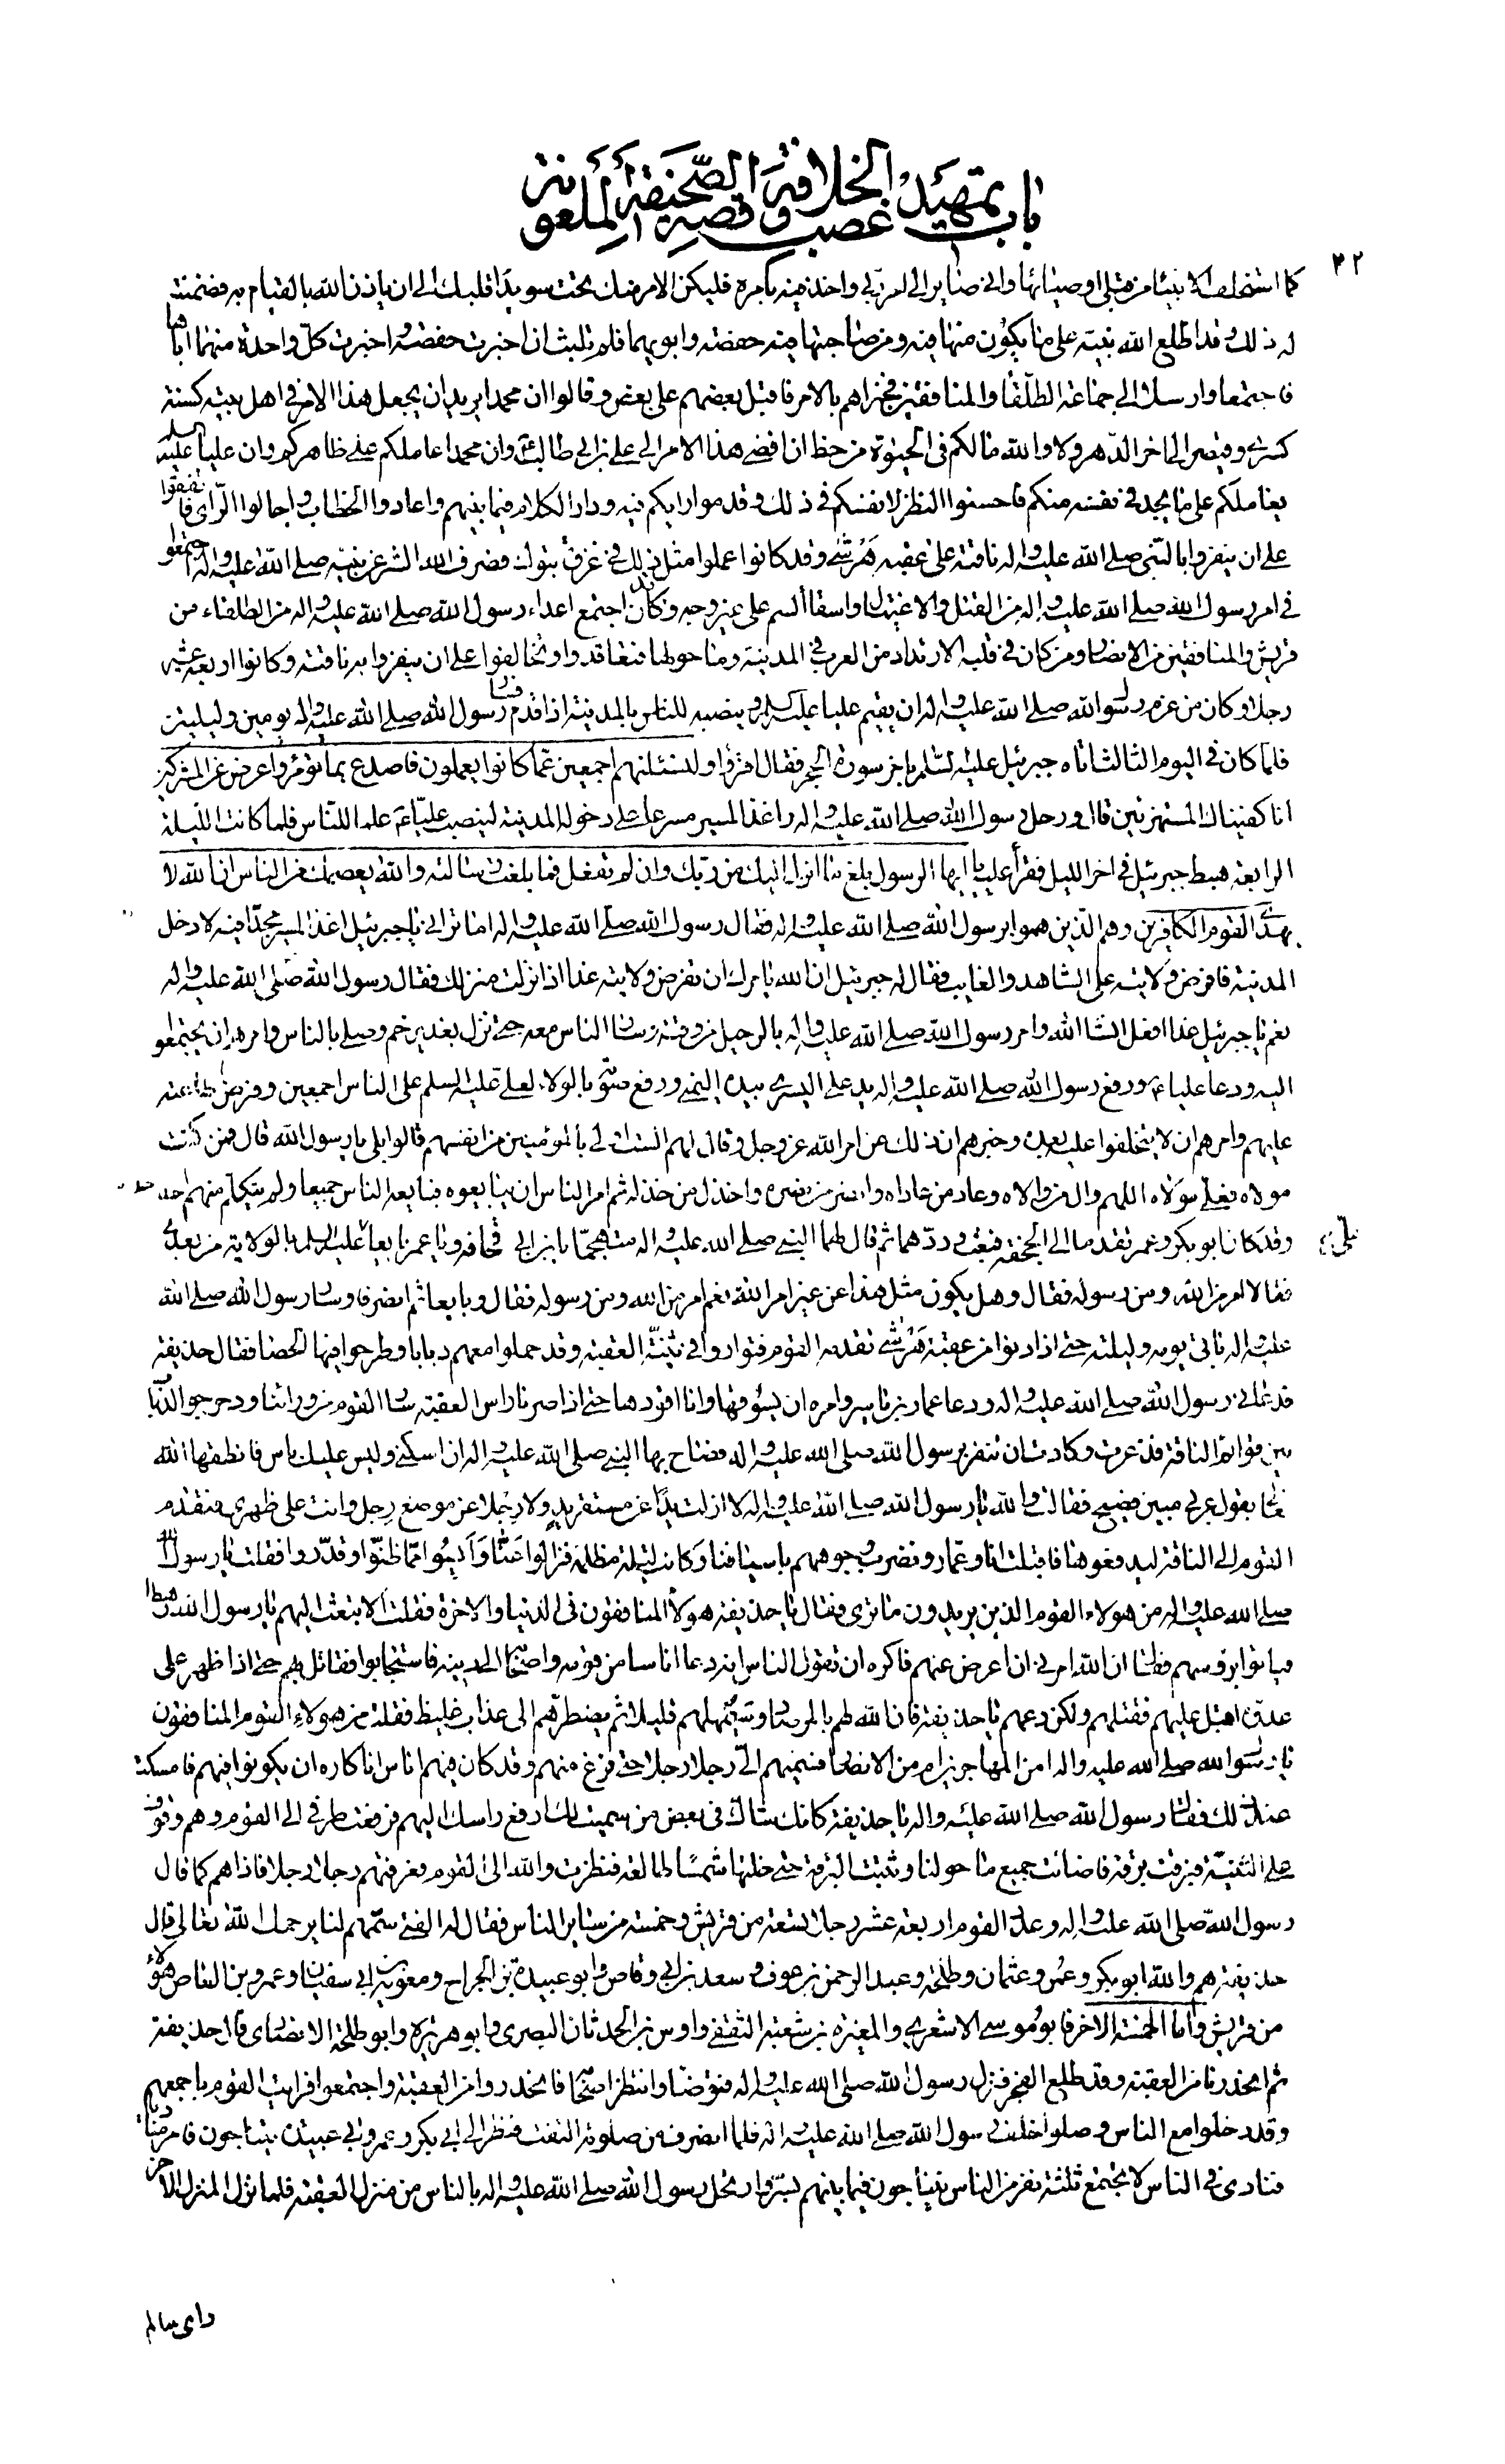 باب تمهيد غصب الخلافة وقصة الصحيفة الملعونة
٣٢
كما استخلف الانبياء من قبلى اوصيائها وانى صاير الى امر ربى واخذ فيه بامره فليكن الامر منك تحت سويداء قلبك الى ان ياذن الله بالقيام به فضمنت
له ذلك وقد اطلع الله نبيه على ما يكون منها فيه ومن صاحبتها حفصة وابويهما فلم تلبث ان اخبرت حفصة واخبرت كل واحدة منهما اباها
فاجتمعا وارسلا الى جماعة الطلقاء والمنافقين فخبراهم بالامر فاقبل بعضهم على بعض وقالوا ان محمدا يريد ان يجعل هذا الامر فى اهل بيته كسنة
كسرى وقيصر الى اخر الدهر ولا والله ما لكم فى الحيوة من حظ ان افضى هذا الامر الى على بن ابى طالب وان محمدا عاملكم على ظاهركم وان عليا عليه السلم
يعاملكم على ما يجد فى نفسه منكم فاحسنوا النظر لانفسكم فى ذلك وقدموا رايكم فيه ودار الكلام فيما بينهم واعادوا الخطاب واجالوا الراى فاتفقوا
على ان ينفروا بالنبى صلى الله عليه واله ناقته على عقبة هرشى وقد كانوا عملوا مثل ذلك فى غزوة تبوك فصرف الله الشر عن نبيه صلى الله عليه واله فاجتمعوا
فى امر رسول الله صلى الله عليه واله من القتل والاغتيال واسقاء السم على غير وجه وقد كان اجتمع اعداء رسول الله صلى الله عليه واله من الطلقاء من
قريش والمنافقين من الانصار ومن كان فى قلبه الارتداد من العرب فى المدينة وما حولها فتعاقدوا وتحالفوا على ان ينفروا به ناقته وكانوا اربعة عشر
رجلا وكان من عزم رسول الله صلى الله عليه واله ان يقيم عليا عليه السلم وينصبه للناس بالمدينة اذا قدم فسار رسول الله صلى الله عليه واله يومين وليلتين
فلما كان فى اليوم الثالث اتاه جبرئيل عليه السلم باخر سورة الحجر فقال اقرأ ولنسئلنهم اجمعين عما كانوا يعملون فاصدع بما تؤمر واعرض عن المشركين
انا كفيناك المستهزئين قال ورحل رسول الله صلى الله عليه واله واغذ المسير مسرعا على دخوله المدينة لينصب عليا ع علما للناس فلما كانت الليلة
الرابعة هبط جبرئيل فى اخر الليل فقرأ عليه يا ايها الرسول بلغ ما انزل اليك من ربك وان لم تفعل فما بلغت رسالته والله يعصمك من الناس ان الله لا
يهدى القوم الكافرين وهم الذين هموا برسول الله صلى الله عليه واله فقال رسول الله صلى الله عليه واله اما ترانى يا جبرئيل اغذ السير مجدا فيه لادخل
المدينة فافرض ولايته على الشاهد والغايب فقال له جبرئيل ان الله يامرك ان تفرض ولايته غدا اذا نزلت منزلك فقال رسول الله صلى الله عليه واله
نعم يا جبرئيل غدا افعل انشا الله وامر رسول الله صلى الله عليه واله بالرحيل من وقته وسار الناس معه حتى نزل بغدير خم وصلى بالناس وامرهم ان يجتمعوا
اليه ودعا عليا ع ورفع رسول الله صلى الله عليه واله يد على اليسرى بيده اليمنى ورفع صوته بالولاء لعلى عليه السلم على الناس اجمعين وفرض طاعته
عليهم وامرهم ان لا يتخلفوا عليه بعده وخبرهم ان ذلك عن امر الله عز وجل وقال لهم الست اولى بالمؤمنين من انفسهم قالوا بلى يا رسول الله قال فمن كنت
مولاه فعلى مولاه اللهم وال من والاه وعاد من عاداه وانصر من نصره واخذل من خذله ثم امر الناس ان يبايعوه فبايعه الناس جميعا ولم يتكلم منهم احد
وقد كان ابو بكر وعمر تقدما الى الجحفة فبعث وردهما ثم قال لهما النبى صلى الله عليه واله متهجما يا بن ابى قحافة ويا عمر بايعا عليا عليه السلم بالولاية من بعدى
فقالا امر من الله ومن رسوله فقال وهل يكون مثل هذا عن غير امر الله نعم امر من الله ومن رسوله فقال وبايعا ثم انصرفا وسار رسول الله صلى الله
عليه واله باقى يومه وليلته حتى اذا دنوا من عقبة هرشى تقدمه القوم فتواروا فى ثنية العقبة وقد حملوا معهم دبابا وطرحوا فيها الحصا فقال حذيفة
فدعانى رسول الله صلى الله عليه واله ودعا عمار بن ياسر وامره ان يسوقها وانا اقودها حتى اذا صرنا راس العقبة ثار القوم من وراثنا ودحرجوا الدباب
بين قوائم الناقة فذعرت وكادت ان تنفر برسول الله صلى الله عليه واله فصاح بها النبى صلى الله عليه واله ان اسكنى وليس عليك باس فانطقها الله
تعالى بقول عربى مبين فصيح فقالت والله يا رسول الله صلى الله عليه واله لا ازلت يدا عن مستقر يد ولا رجلا عن موضع رجل وانت على ظهرى فتقدم
القوم الى الناقة ليدفعوها فاقبلت انا وعمار ونضرب وجوههم باسيافنا وكانت ليلة مظلمة فزالوا عنا وايسوا مما ظنوا وقدروا فقلت يا رسول الله
صلى الله عليه واله من هولاء القوم الذين يريدون ما ترى فقال يا حذيفة هولاء المنافقون فى الدنيا والاخرة فقلت الا تبعث اليهم يا رسول الله رهطا
فياتوا برؤسهم فقال ان الله امرنى ان اعرض عنهم فاكره ان تقول الناس انه دعا اناسا من قومه واصحابه الى دينه فاستجابوا فقاتل بهم حتى اذا ظهر على
عدوه اقبل عليهم فقتلهم ولكن دعهم يا حذيفة فان الله لهم بالمرصاد وسيمهلهم قليلا ثم يضطرهم الى عذاب غليظ فقلت من هولاء القوم المنافقون
يا رسول الله صلى الله عليه واله امن المهاجرين ام من الانصار فسميهم الى رجلا رجلا حتى فرغ منهم وقد كان فيهم اناس انا كاره ان يكونوا فيهم فامسكت
عند ذلك فقال رسول الله صلى الله عليه واله يا حذيفة كانك شاك فى بعض من سميت لك ارفع راسك اليهم فرفعت طرفى الى القوم وهم وقوف
على الثنية فبرقت برقة فاضائت جميع ما حولنا وثبتت البرقة حتى خلتها شمسا طالعة فنظرت والله الى القوم فعرفتهم رجلا رجلا فاذا هم كما قال
رسول الله صلى الله عليه واله وعدد القوم اربعة عشر رجلا تسعة من قريش وخمسة من ساير الناس فقال له الفتى سمهم لنا يرحمك الله تعالى قال
حذيفة هم والله ابو بكر وعمر وعثمان وطلحة وعبد الرحمن بن عوف وسعد بن ابى وقاص وابو عبيدة بن الجراح ومعوية بن ابى سفيان وعمرو بن العاص هؤلاء
من قريش واما الخمسة الاخر فابو موسى الاشعرى والمغيرة بن شعبة الثقفى واوس بن الحدثان البصرى وابو هريرة وابو طلحة الانصارى قال حذيفة
ثم انحدرنا من العقبة وقد طلع الفجر فنزل رسول الله صلى الله عليه واله فتوضا وانتظر اصحابه فانحدروا من العقبة واجتمعوا فرايت القوم باجمعهم
وقد دخلوا مع الناس وصلوا خلف رسول الله صلى الله عليه واله فلما انصرف من صلوته التفت فنظر الى ابى بكر وعمر وابى عبيدة يتناجون فامر مناديا
فنادى فى الناس لا تجتمع ثلثة نفر من الناس يتناجون فيما بينهم بسر وارتحل رسول الله صلى الله عليه واله بالناس من منزل العقبة فلما نزل المنزل الاخر
راى سالم